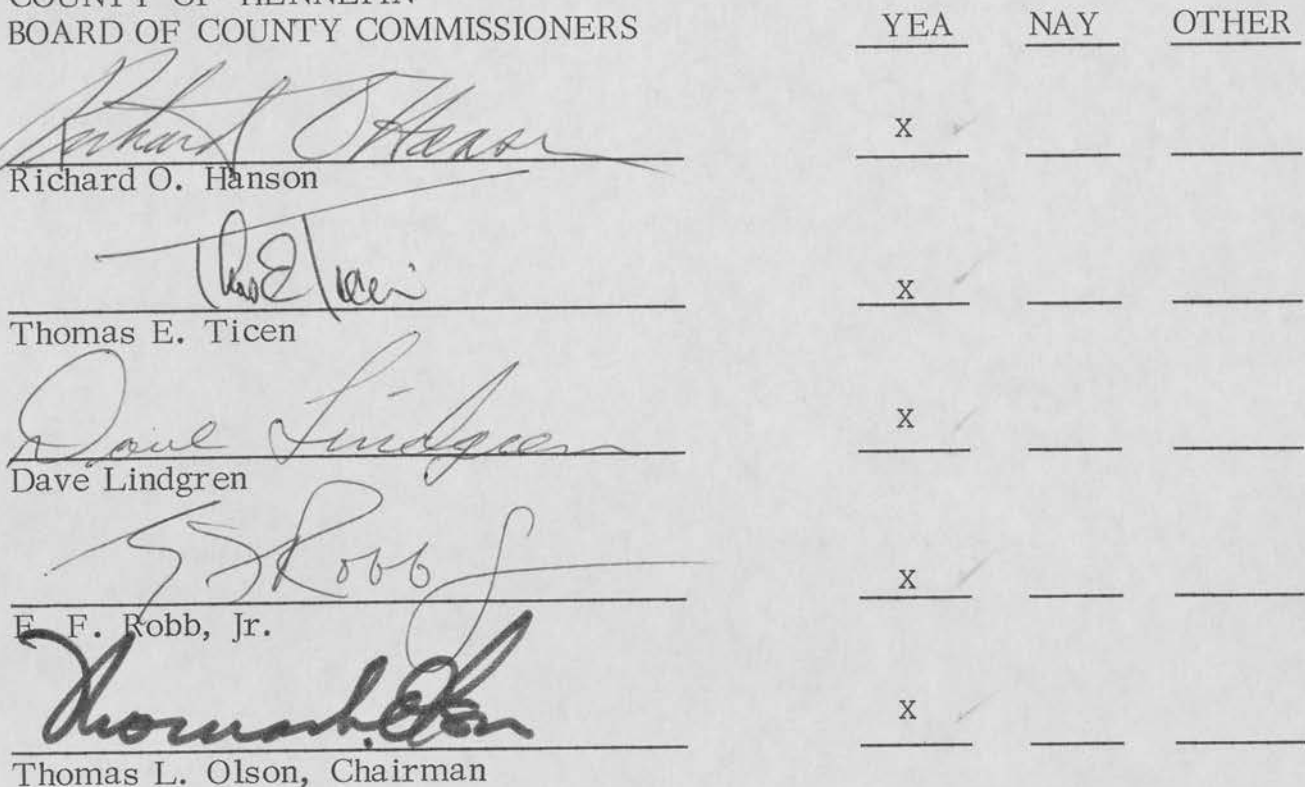 COUNTY OF HENNEPIN
BOARD OF COUNTY COMMISSIONERS YEA NAY OTHER
Richard O Hanson X
Richard O. Hanson
Thos E Ticen X
Thomas E. Ticen
Dave Lindgren X
Dave Lindgren
E F Robb Jr X
E. F. Robb, Jr.
Thomas L. Olson X
Thomas L. Olson, Chairman